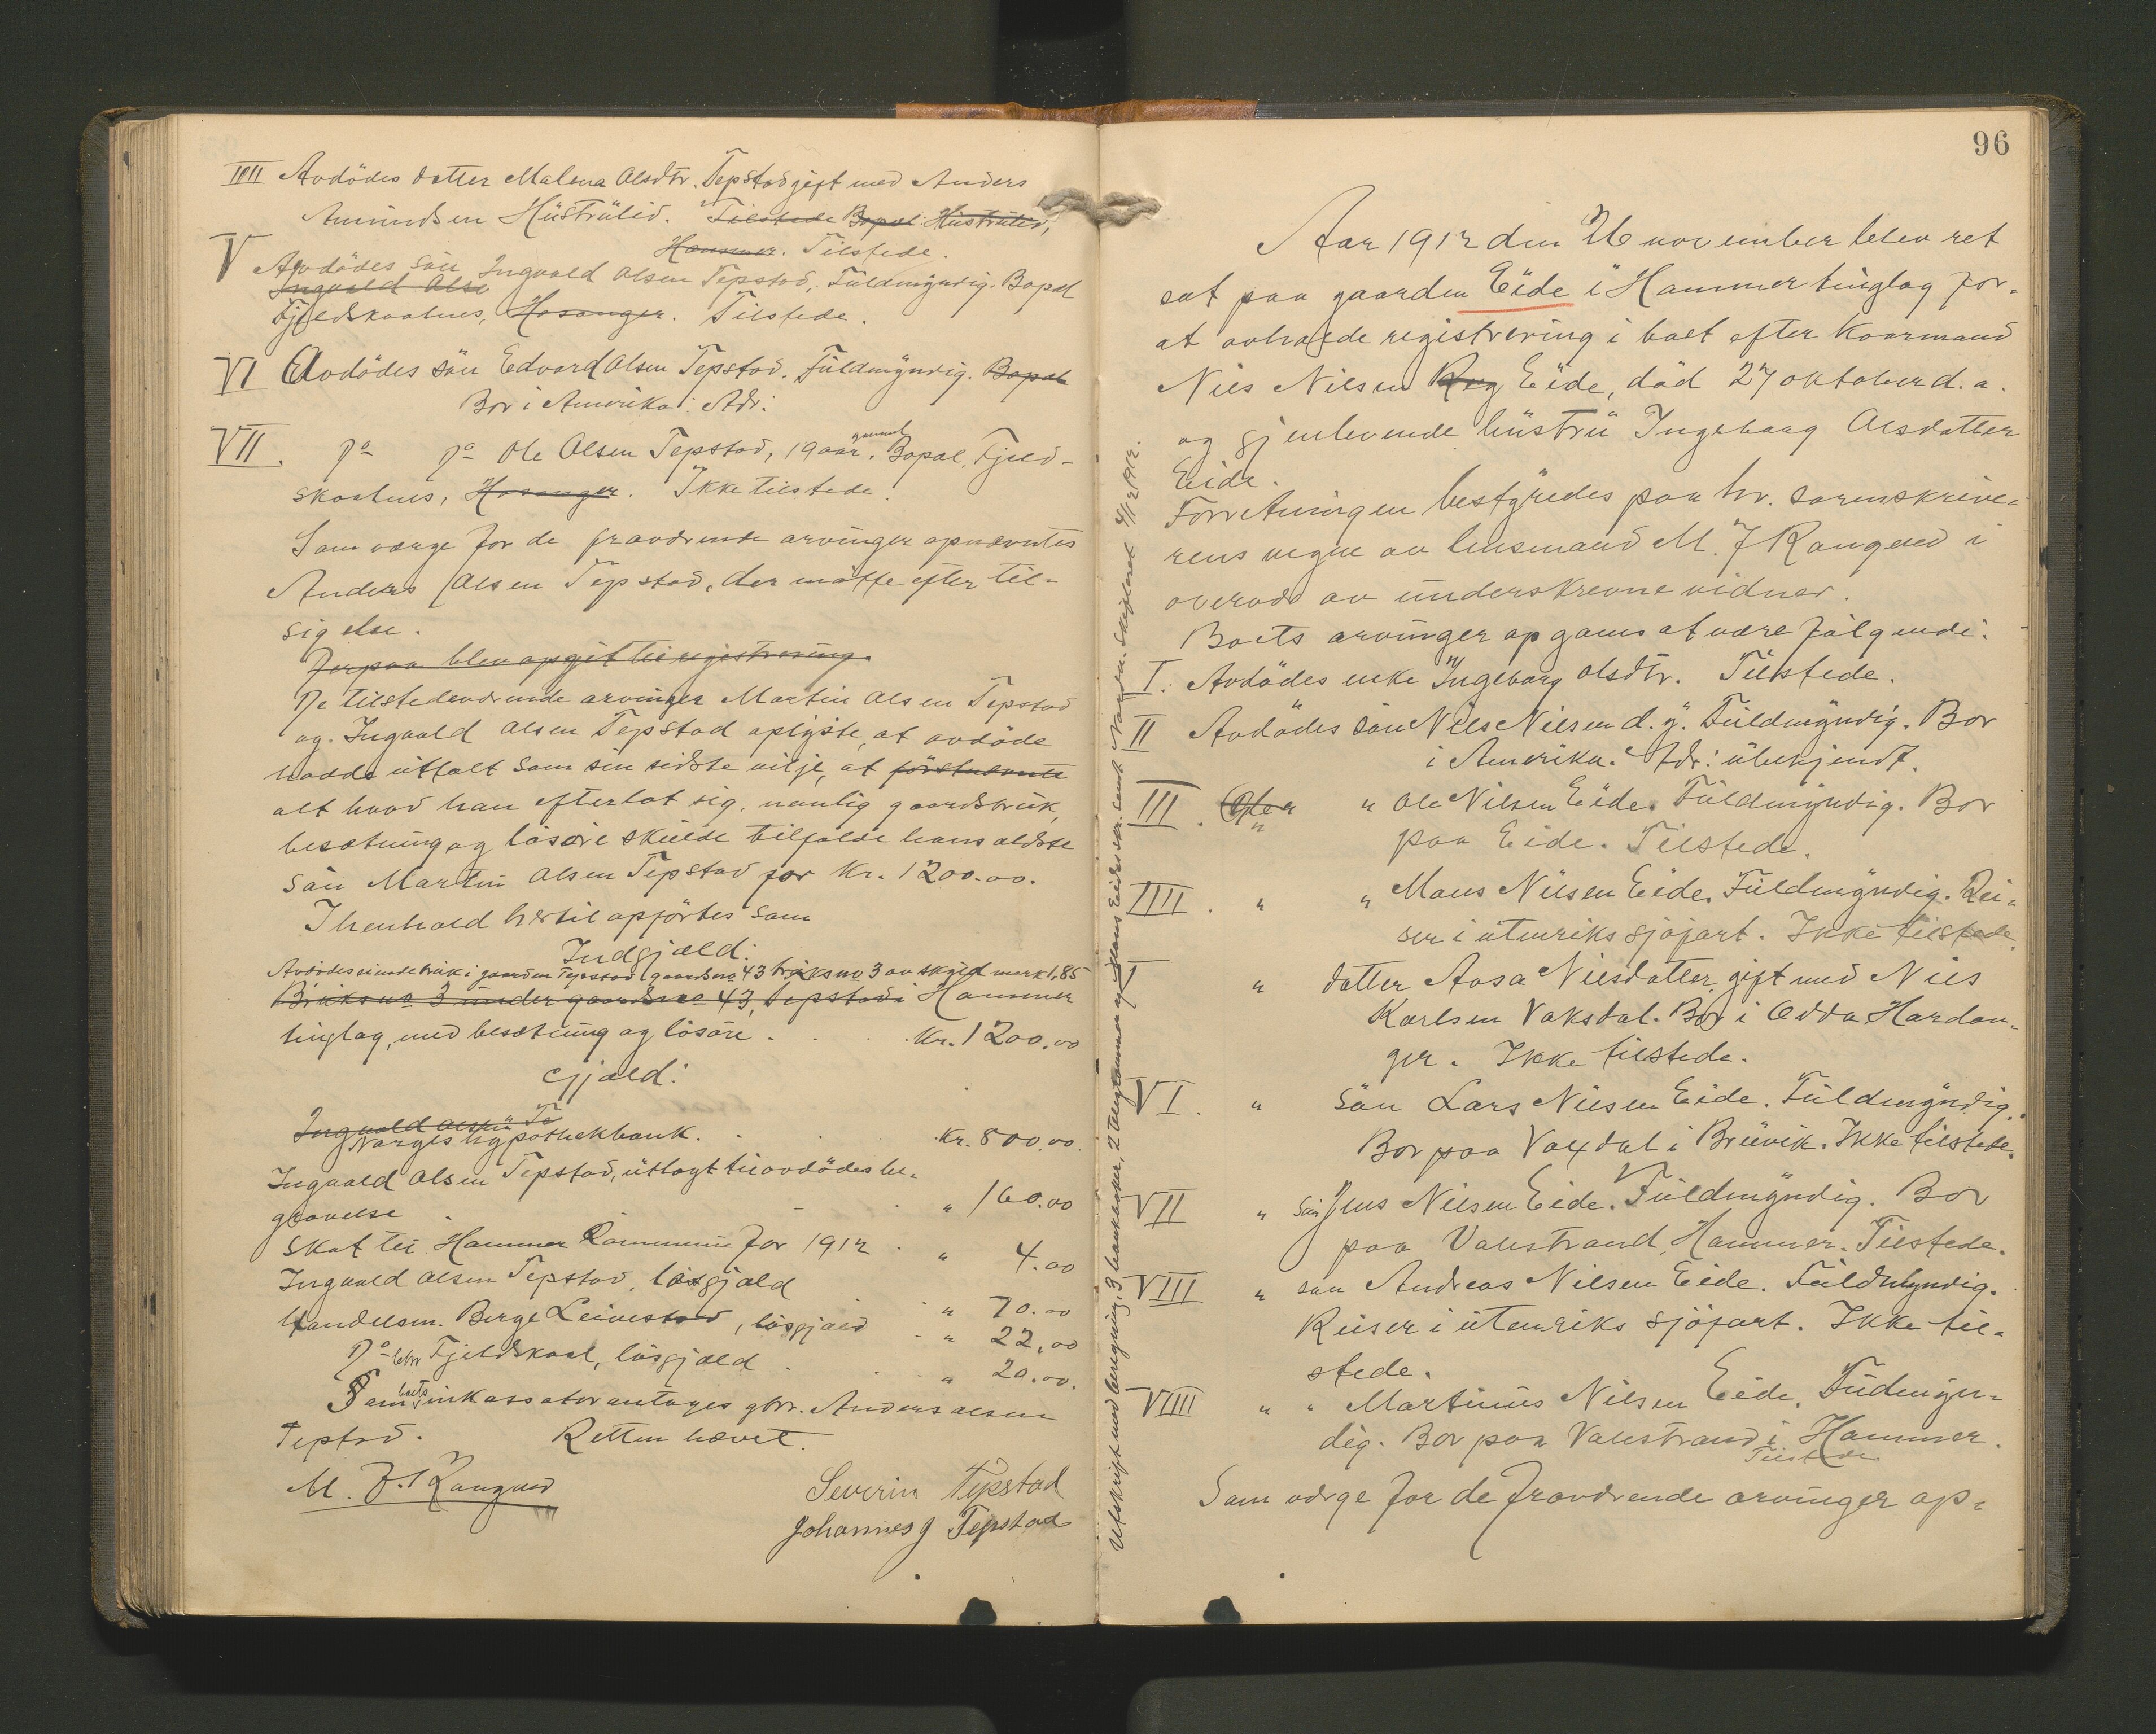 IIII Avdödes datter Malena Olsdtr. Tepstad gift med Anders
Amundsen Hüstrülid. Tilstede Bopæl: Hüstrülid,
Hammer. Tilstede.
V Avdödes sön Ingvald Olsen Tepstad, Füldmyndig. Bopæl
Ingvald Olse
Fjeldskaalnes, Hosanger. Tilstede.
VI Avdödes sön Edvard Olsen Tepstad. Füldmyndig. Bopæl
Bor i Amerika: Adr:
VII. Do Do Ole Olsen Tepstad, 19 aar gammel. Bopæl, Fjeld-
skaalnes, Hosanger. Ikke tilstede.
Som værge for de fraværende arvinger opnævntes
Anders Olsen Tepstad, der mötte efter til-
sigelse.
Derpaa blev opgit til registrering.
De tilstedeværende arvinger Martin Olsen Tepstad
og Ingvald Olsen Tepstad oplyste, at avdöde
hadde üttalt som sin sidste vilje, at förstnævnte
alt hvad han efterlot sig, nemlig gaardsbrük,
besætning og lösöre skülde tilfalde hans ældste
sön Martin Olsen Tepstad for Kr. 1200.00.
I henhold hertil opförtes som
Indgjæld:
Avdödes eiendebrük i gaarden Tepstad gaardsno 43 brüksno 3 av skyld mark 1,85
Brüksno 3 ünder gaardsno 43, Tepstad i Hammer
tinglag, med besætning og lösöre . . . Kr. 1200.00
Gjæld:
Ingvald Olsen Te
Norges hypothekbank. . . . Kr. 800.00
Ingvald Olsen Tepstad, ütlagt til avdödes be-
gravelse . . . " 160.00
Skat til Hammer Kommune for 1912 . " 4.00
Ingvald Olsen Tepstad, lösgjæld . . " 70.00
Handelsm. Berge Leivestad, lösgjæld . . " 22,00
Do Fjeldskaal, lösgjæld . . . " 20.00.
Som boets inkassator antages gbr. Anders Olsen
Tepstad. Retten hævet.
M. J. Rangnæd
Severin Tepstad
Johannes J Tepstad
96
Utskrift med beregning, 3 lomkasser, 12 ... Eide ... sendt ... 4/12 1912.
Aar 1912 den 26 november blev ret
sat paa gaarden Eide i Hammer tinglag for
at avholde registrering i boet efter kaarmand
Nils Nilsen Rog Eide, död 27 oktober d. a.
og gjenlevende hüstrü Ingeborg Olsdatter
Eide.
Forretningen bestyredes paa hr. sorenskrive-
rens vegne av lensmand M. J Rangnæd i
overvær av ünderskrevne vidner.
Boets arvinger opgaves at være fölgende:
I. Avdödes enke Ingeborg Olsdtr. Tilstede.
II Avdödes sön Nils Nilsen d. y. Füldmyndig. Bor
i Amerika. Adr: übekjendt.
III. Ole " " Ole Nilsen Eide. Füldmyndig. Bor
paa Eide. Tilstede.
IIII. " " Mons Nilsen Eide. Füldmyndig. Rei-
ser i ütenriks sjöfart. Ikke tilstede.
V " datter Aasa Nilsdatter, gift med Nils
Karlsen Vaksdal. Bor i Odda, Hardan-
ger. Ikke tilstede.
VI. " sön Lars Nilsen Eide. Füldmyndig.
Bor paa Vaxdal i Brüvik. Ikke tilstede.
VII " sön Jens Nilsen Eide. Füldmyndig. Bor
paa Valestrand, Hammer. Tilstede.
VIII " sön Andreas Nilsen Eide. Füldmyndig.
Reiser i ütenriks sjöfart. Ikke til-
stede.
VIIII " " Martinus Nilsen Eide. Füldmyn-
dig. Bor paa Valestrand i Hammer.
Tilstede
Som værge for de fraværende arvinger op-